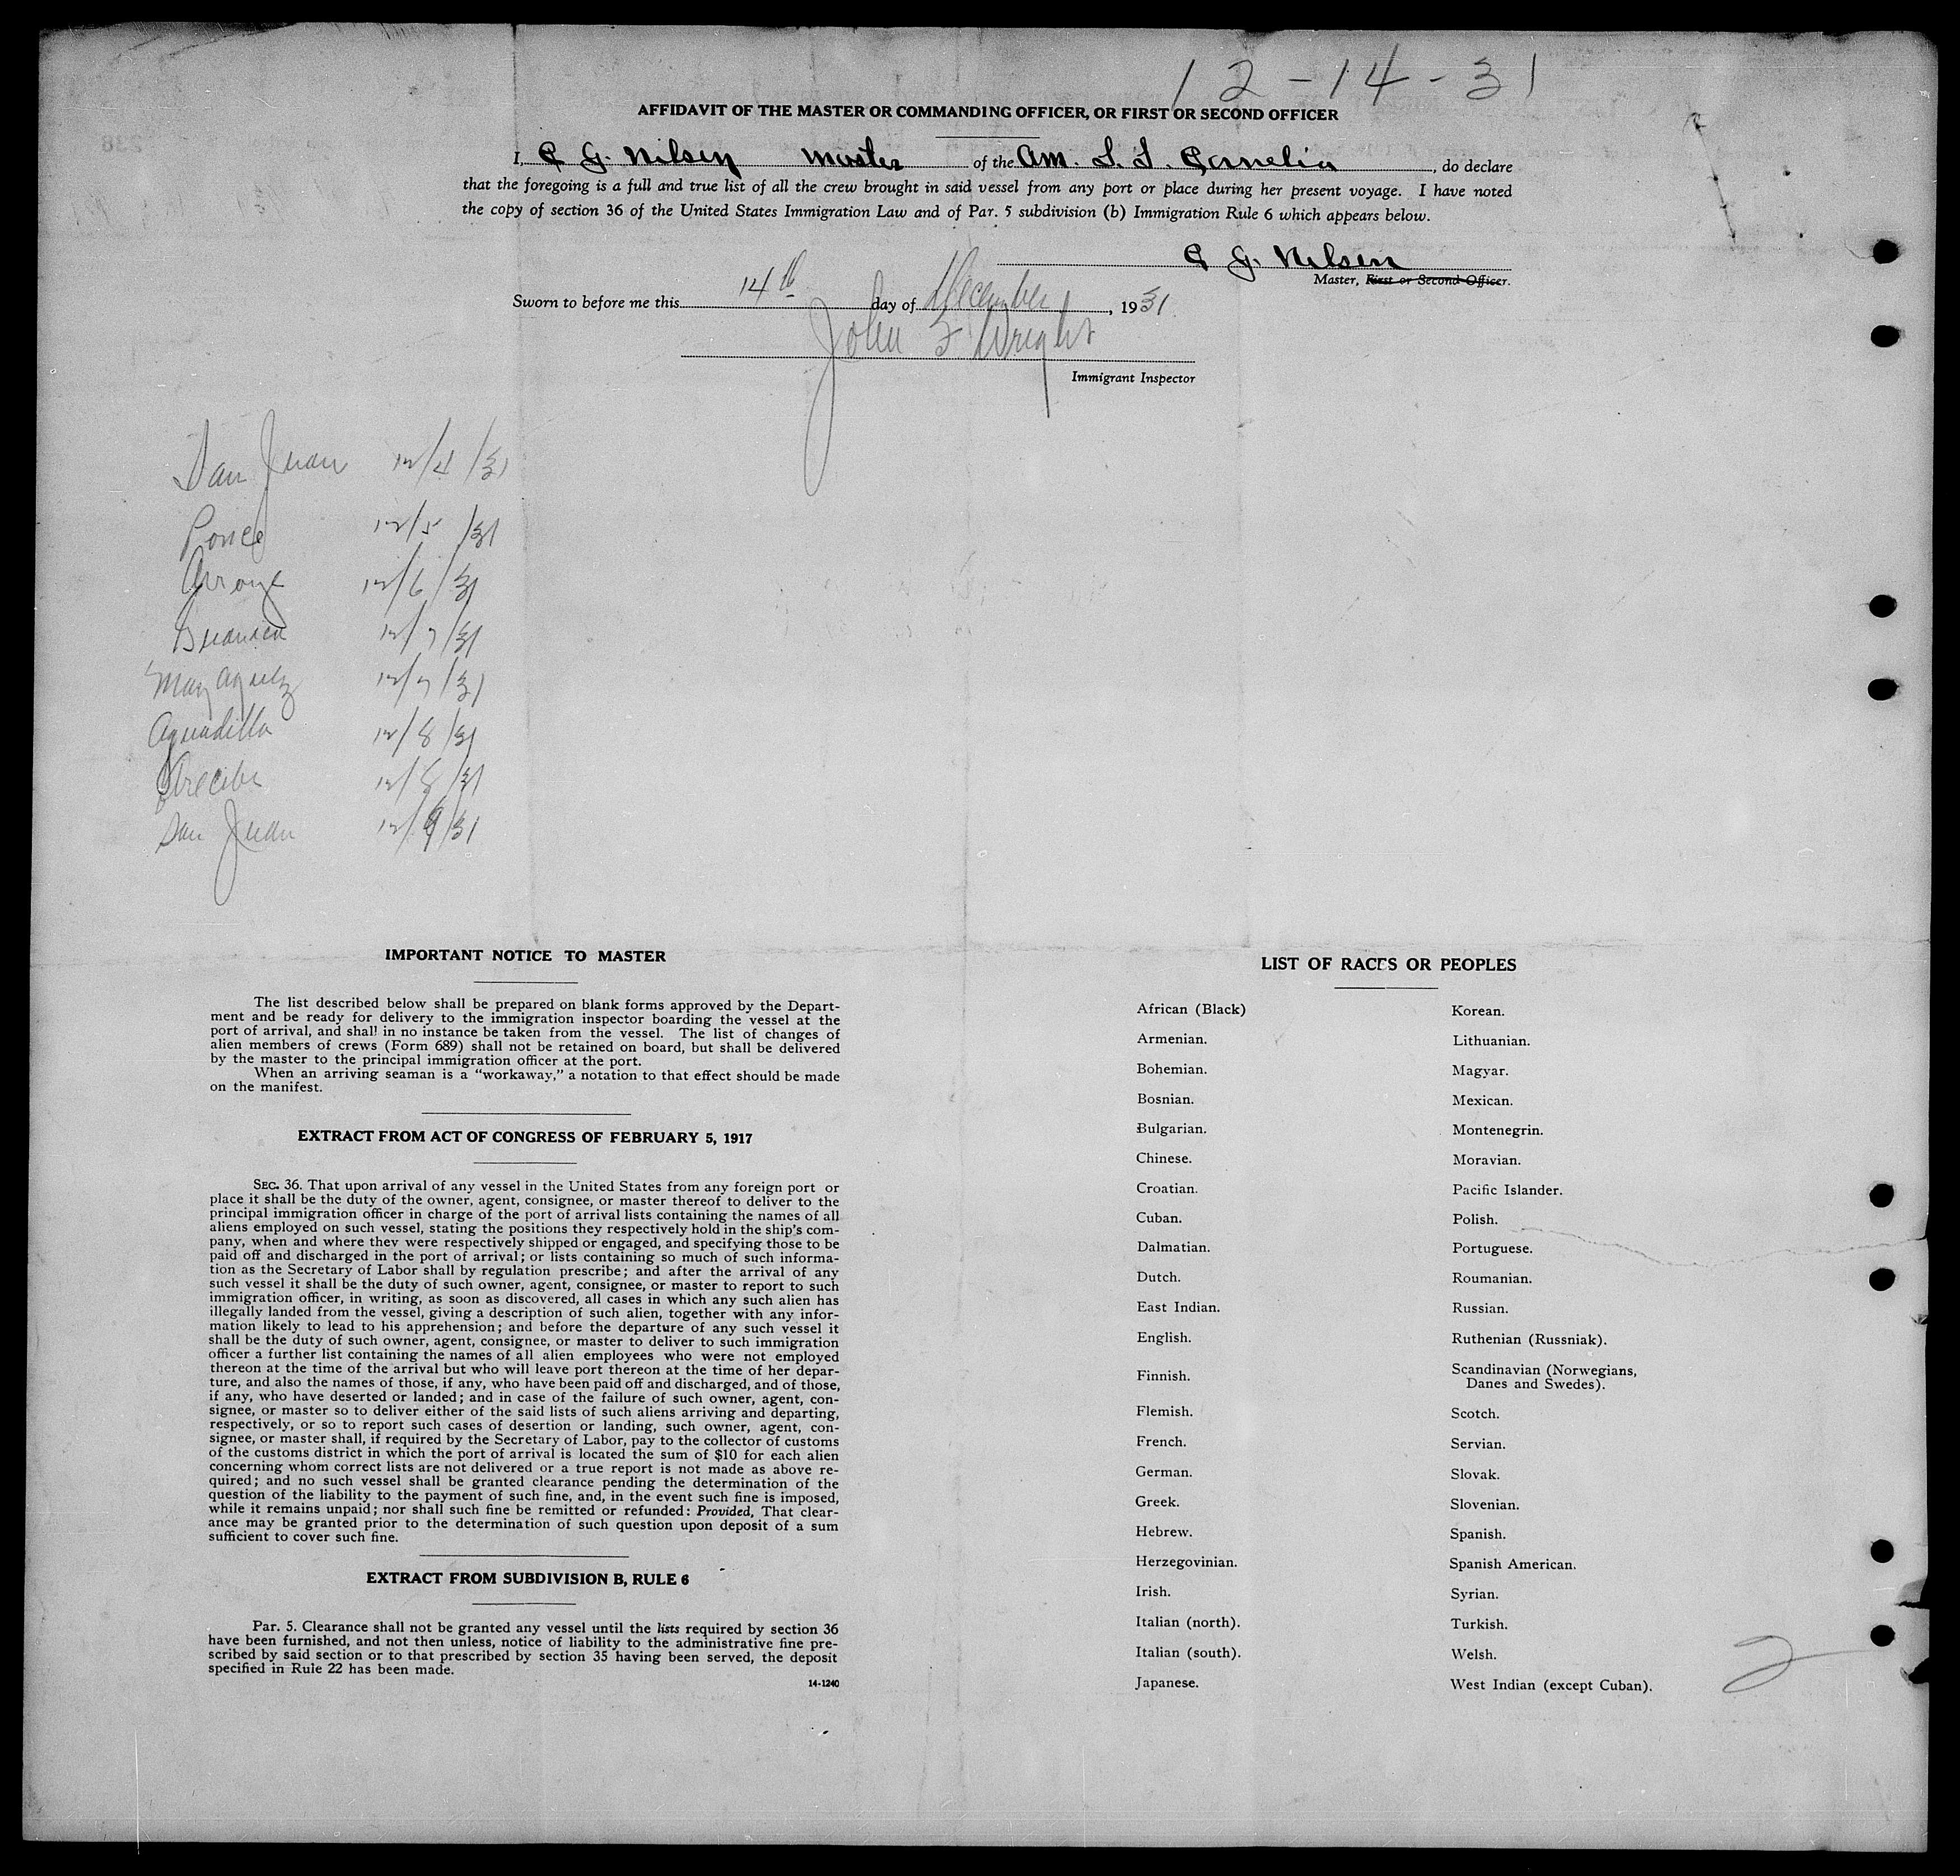 12-14-31
AFFIDAVIT OF THE MASTER OR COMMANDING OFFICER, OR FIRST OR SECOND OFFICER
I, C G. Nilsen Master of the Am. S. S. Cornelia, do declare
that the foregoing is a full and true list of all the crew brought in said vessel from any port or place during her present voyage. I have noted
the copy of section 36 of the United States Immigration Law and of Par. 5 subdivision (b) Immigration Rule 6 which appears below.
C G. Nilsen
Master, First or Second Officer.
Sworn to before me this 14th day of December, 1931
John F Wright
Immigrant Inspector
San Juan 12/4/31
Ponce 12/5/31
Arroyo 12/6/31
12/7/31
Mayaguez 12/7/31
Aguadilla 12/8/31
Arecibo 12/8/31
San Juan 12/9/31
IMPORTANT NOTICE TO MASTER
The list described below shall be prepared on blank forms approved by the Depart-
ment and be ready for delivery to the immigration inspector boarding the vessel at the
port of arrival, and shall in no instance be taken from the vessel. The list of changes of
alien members of crews (Form 689) shall not be retained on board, but shall be delivered
by the master to the principal immigration officer at the port.
When an arriving seaman is a "workaway," a notation to that effect should be made
on the manifest.
EXTRACT FROM ACT OF CONGRESS OF FEBRUARY 5, 1917
SEC. 36. That upon arrival of any vessel in the United States from any foreign port or
place it shall be the duty of the owner, agent, consignee, or master thereof to deliver to the
principal immigration officer in charge of the port of arrival lists containing the names of all
aliens employed on such vessel, stating the positions they respectively hold in the ship's com-
pany, when and where they were respectively shipped or engaged, and specifying those to be
paid off and discharged in the port of arrival; or lists containing so much of such informa-
tion as the Secretary of Labor shall by regulation prescribe; and after the arrival of any
such vessel it shall be the duty of such owner, agent, consignee, or master to report to such
immigration officer, in writing, as soon as discovered, all cases in which any such alien has
illegally landed from the vessel, giving a description of such alien, together with any infor-
mation likely to lead to his apprehension; and before the departure of any such vessel it
shall be the duty of such owner, agent, consignee, or master to deliver to such immigration
officer a further list containing the names of all alien employees who were not employed
thereon at the time of the arrival but who will leave port thereon at the time of her depar-
ture, and also the names of those, if any, who have been paid off and discharged, and of those,
if any, who have deserted or landed; and in case of the failure of such owner, agent, con-
signee, or master so to deliver either of the said lists of such aliens arriving and departing,
respectively, or so to report such cases of desertion or landing, such owner, agent, con-
signee, or master shall, if required by the Secretary of Labor, pay to the collector of customs
of the customs district in which the port of arrival is located the sum of $10 for each alien
concerning whom correct lists are not delivered or a true report is not made as above re-
quired; and no such vessel shall be granted clearance pending the determination of the
question of the liability to the payment of such fine, and, in the event such fine is imposed,
while it remains unpaid; nor shall such fine be remitted or refunded: Provided, That clear-
ance may be granted prior to the determination of such question upon deposit of a sum
sufficient to cover such fine.
EXTRACT FROM SUBDIVISION B, RULE 6
Par. 5. Clearance shall not be granted any vessel until the lists required by section 36
have been furnished, and not then unless, notice of liability to the administrative fine pre-
scribed by said section or to that prescribed by section 35 having been served, the deposit
specified in Rule 22 has been made.
14-1240
LIST OF RACES OR PEOPLES
African (Black)
Armenian.
Bohemian.
Bosnian.
Bulgarian.
Chinese.
Croatian.
Cuban.
Dalmatian.
Dutch.
East Indian.
English.
Finnish.
Flemish.
French.
German.
Greek.
Hebrew.
Herzegovinian.
Irish.
Italian (north).
Italian (south).
Japanese.
Korean.
Lithuanian.
Magyar.
Mexican.
Montenegrin.
Moravian.
Pacific Islander.
Polish.
Portuguese.
Roumanian.
Russian.
Ruthenian (Russniak).
Scandinavian (Norwegians,
Danes and Swedes).
Scotch.
Servian.
Slovak.
Slovenian.
Spanish.
Spanish American.
Syrian.
Turkish.
Welsh.
West Indian (except Cuban).
2